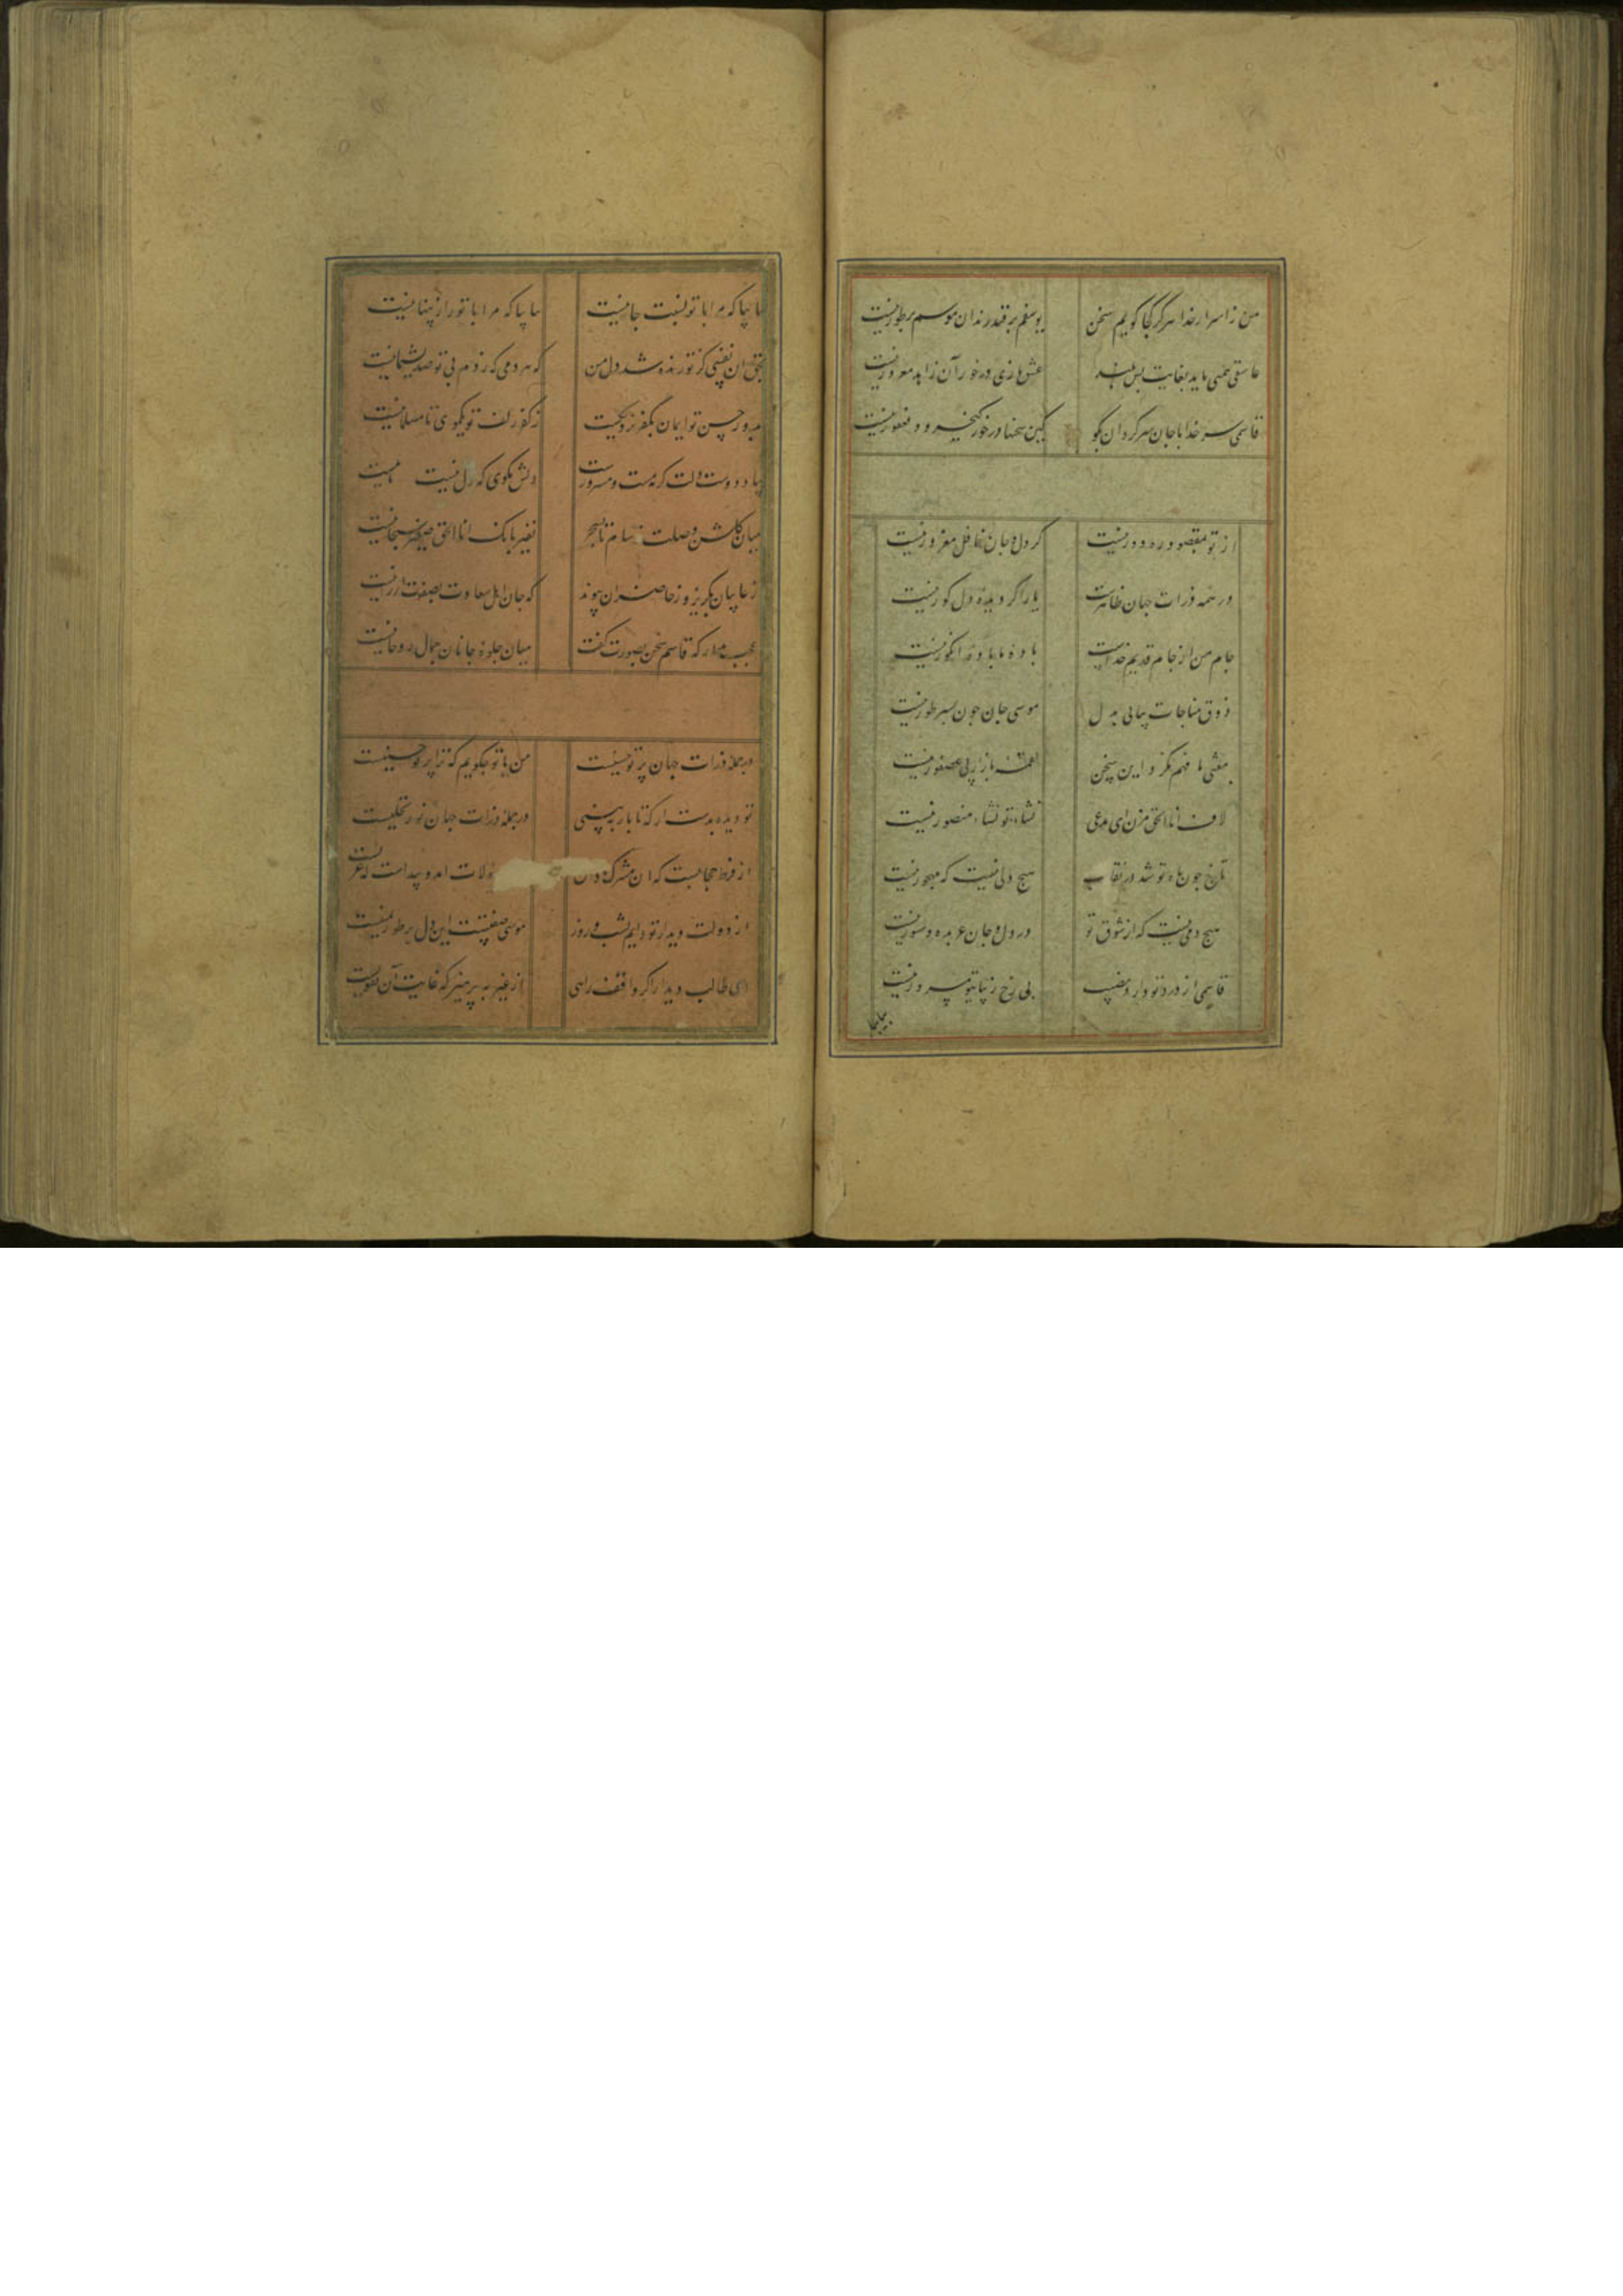 من ز اسرار خدا هرگز کجا گویم سخن یوسفم بر قید زندان موسیم بر طور نیست
عاشقی همتی باید بغایت بس بلند عشقبازی در خور آن زاهد معذور نیست
قاسمی سر خدا با جان سرکردان بگو کین سخنها در خور کیخسرو و فغفور نیست
از تو مقصود ره دور نیست کر دل و جان غافل مغرور نیست
در همه ذرات جهان ظاهرست یار اگر دیده دل کور نیست
جام من از جام قدیم خداست باده ما باده انگور نیست
ذوق مناجات بیابی به دل موسی جان چون بسر طور نیست
معشی ما فهم نکرد این سخن باز پی عصفور نیست
لاف انا الحق مزن ای مدعی نشاء تو نشاء منصور نیست
تا رخ چون ماه تو شد در نقاب هیچ دلی نیست که مهجور نیست
هیچ دمی نیست که از شوق تو در دل و جان عربده و شور نیست
قاسمی از درد تو دارد نصیب بی رخ زیبای تو مسرور نیست
بیا بیا
بیا بیا که مرا با تو نسبت جانیست بیا بیا که مرا با تو راز پنهانیست
بحق آن نفسی کز تو زنده شد دل من که هر دمی که زدم بی تو صد پشیمانیست
بدور حسن تو ایمان بکفر نزدیکست ز کفر زلف تو یکموی تا مسلمانیست
دلش مگوی که دل نیست
میان گلشن وصلت تا بسحر نفیر بانگ انا الحق صفیر سبحانیست
ز غایبان بگریز و ز حاضران پیوند که جان اهل سعادت بصفوت ارزانیست
عجب مدار که قاسم سخن بصورت گفت میان جلوه جانان جمال روحانیست
در جمله ذرات جهان پرتو حسنیست من با تو چگویم که ترا پرتو حس نیست
تو دیده بدست آر که تا باز ببینی در جمله ذرات جهان نور تجلیست
از فرط حجابست که ان مشرک
از دولت دیدار تو دایم شب و روز موسی صفتست این دل بر طور
ای طالب دیدار اگر واقف راهی از غیر بپرهیز که غایت آن تقویست